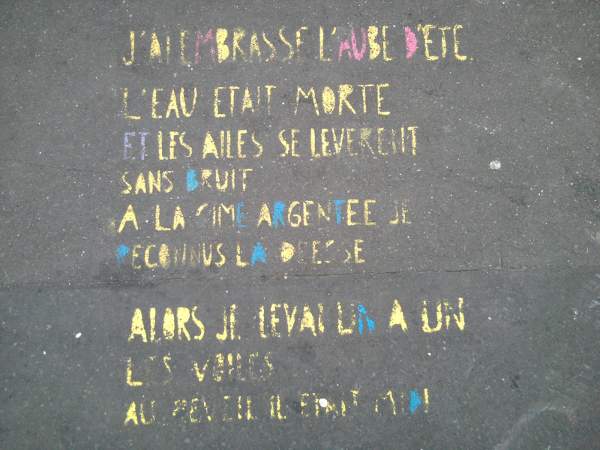 J'AI EMBRASSE L'AUBE D'ETE.
L'EAU ETAIT MORTE
ET LES AILES SE LEVERENT
SANS BRUIT
A LA CIME ARGENTEE JE
RECONNUS LA DEESSE
ALORS JE LEVAI UN A UN
LES VOILES
AU REVEIL IL ETAIT MIDI